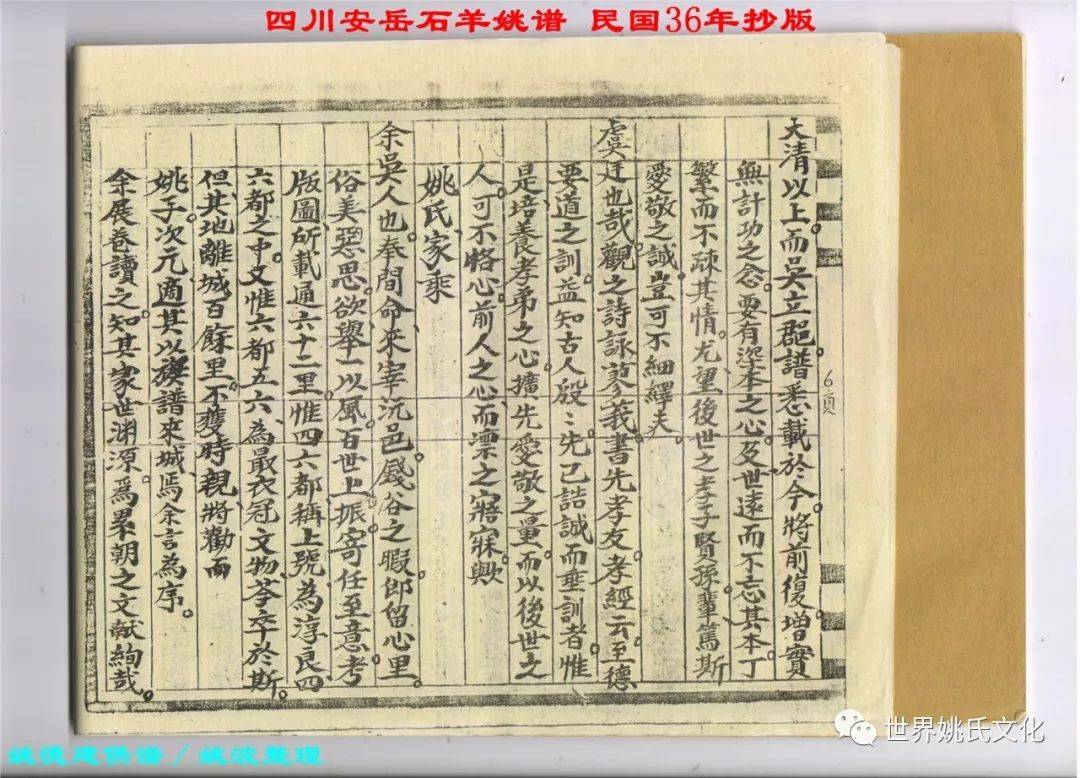 四川安岳石羊姚谱 民国36年抄版
大清以上。而吳立郡譜。悉載於今。將前復。增實
無計功之念。要有梁本之心。及世遠而不忘其本。丁
繁而不疎其情。尤望後世之孝子賢孫輩篤斯
愛敬之誠。豈可不細繹夫。
虞廷也哉。觀之詩詠蓼莪。書先孝友。孝經云。至德
要道之訓。益知古人殷殷先已誥誡而垂訓者。惟
是培養孝弟之心。擴先愛敬之量。而以後世之
人可不恪心前人之心而凛之寤寐歟。
姚氏家乘
余吳人也。奉間命來宰沅邑。錢谷之暇。郎留心里
俗美惡。思欲舉一以風百世上振。寄任至意。考
版圖所載。通六十二里。惟四六都稱上號。為淳良。四
六都之中。又惟六都五六。為最衣冠文物。苓卒於斯。
但其地離城百餘里。不獲時親將勸而
姚子次元。適其以族譜來城。焉余言為序。
余展卷讀之。知其家世渊源。爲累朝之文献絢哉。
6頁
世界姚氏文化
姚俊建供谱 / 姚波整理